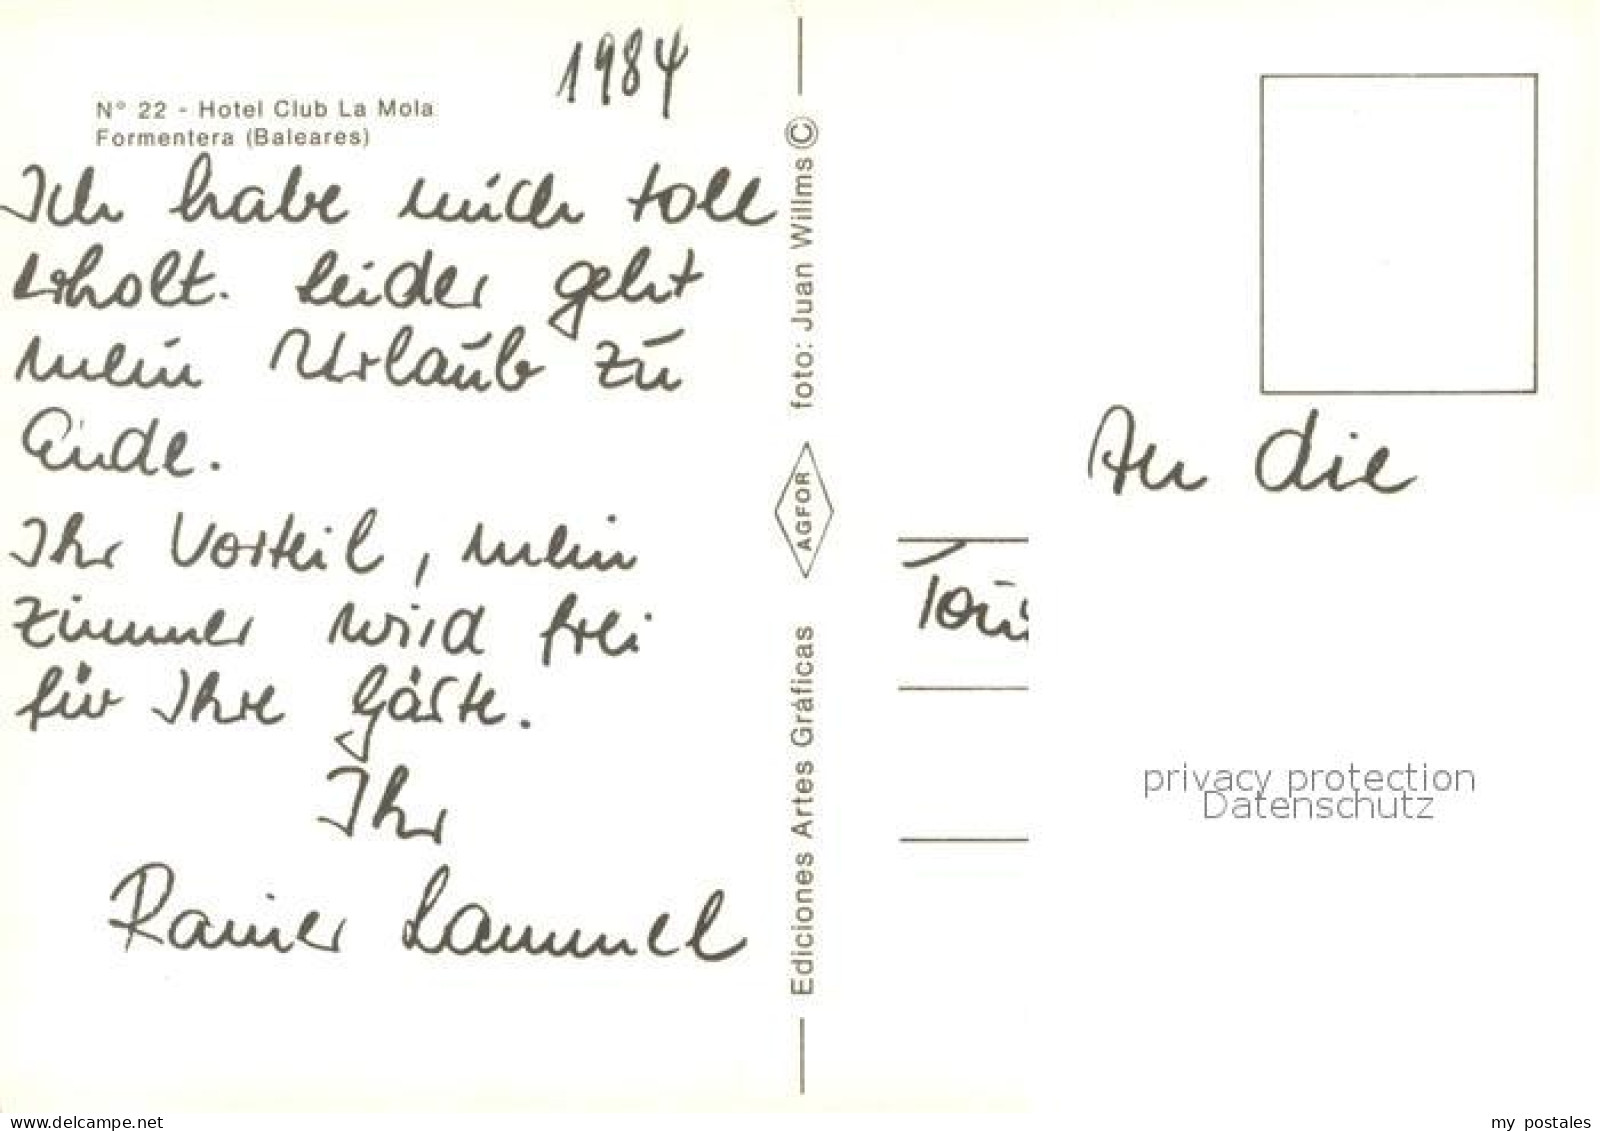 1984
N° 22 - Hotel Club La Mola
Formentera (Baleares)
Ich habe mich toll
erholt. Leider geht
mein Urlaub zu
Ende.
Ihr Vorteil, mein
Zimmer wird frei
für Ihre Gäste.
Ihr
Rainer Lammel
foto: Juan Willms ©
AGFOR
Ediciones Artes Gráficas
An die
privacy protection
Datenschutz
www.delcampe.net
my_postales